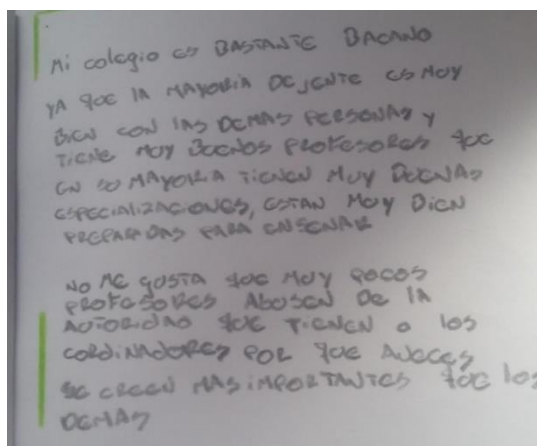 Mi colegio es BASTANTE BACANO
YA QUE LA MAYORIA DE JENTE ES MUY
BIEN CON LAS DEMAS PERSONAS Y
TIENE MUY BUENOS PROFESORES QUE
EN SU MAYORIA TIENEN MUY BUENAS
ESPECIALIZACIONES, ESTAN MUY BIEN
PREPARADAS PARA ENSENAR
NO ME GUSTA QUE MUY POCOS
PROFESORES ABUSEN DE LA
AUTORIDAD QUE TIENEN O LOS
CORDINADORES POR QUE AVECES
SE CREEN MAS IMPORTANTES QUE LOS
DEMAS